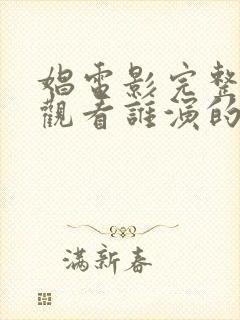 娼電影完整
觀看誰演的
满新春